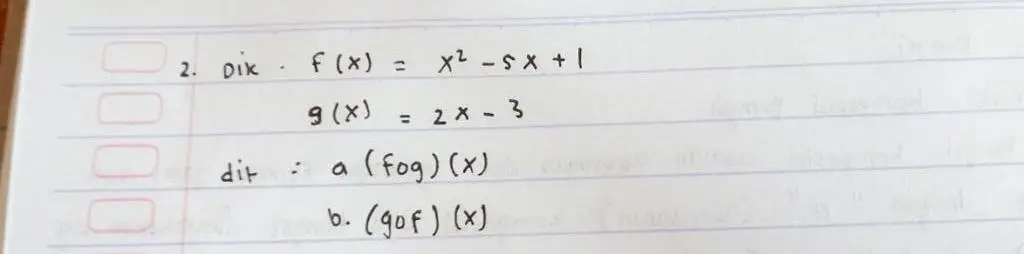 2. Dik. f(x) = x² - 5x + 1
g(x) = 2x - 3
dit : a (fog)(x)
b. (gof)(x)